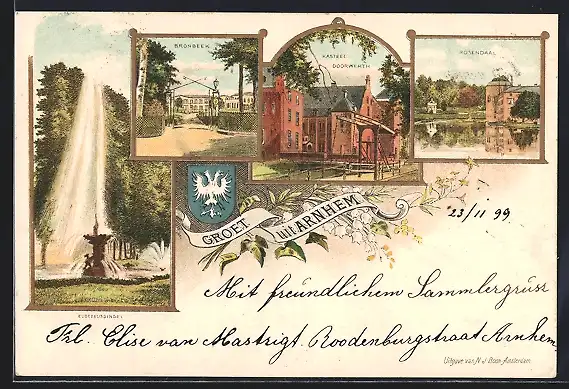 BRONBEEK
KASTEEL
DOORWERTH
ROSENDAAL
GROET uit ARNHEM
23/11 99
Mit freundlichem Sammlergruss
Frl. Elise van Mastrigt. Roodenburgstraat Arnhem.
Uitgave van N. J. Boon Amsterdam